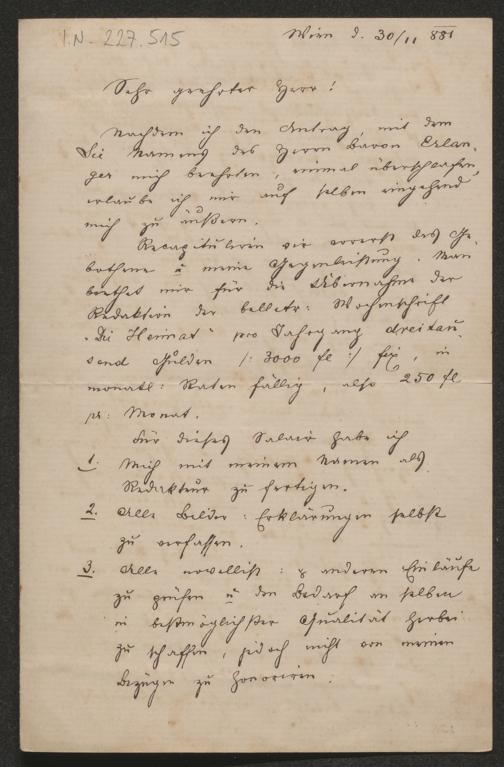 I.N. 227.515
Wien d. 30/11 881
Sehr geehrter Herr!
Nachdem ich den Antrag, mit dem
Sie Namens des Herrn Baron Erlan-
ger mich beehrten, einmal überschlafen,
erlaube ich mir auf selben eingehend
mich zu äußern.
Recapitulieren wir vorerst das Ge-
bothene u meine Gegenleistung. Man
biethet mir für die Übernahme der
Redaktion der belletr: Wochenschrift
"Die Heimat" pro Jahrgang dreitau-
send Gulden /: 3000 fl :/ fix, in
monatl: Raten fällig, also 250 fl
pr: Monat.
Für dieses Salair habe ich
1. Mich mit meinem Namen als
Redakteur zu fertigen.
2. Alle Bilder: Erklärungen selbst
zu verfassen.
3. Alle novellist: & anderen Einläufe
zu prüfen u den Bedarf an selben
in bestmöglichster Qualität herbei
zu schaffen, jedoch nicht von meinen
Bezügen zu honoriren.